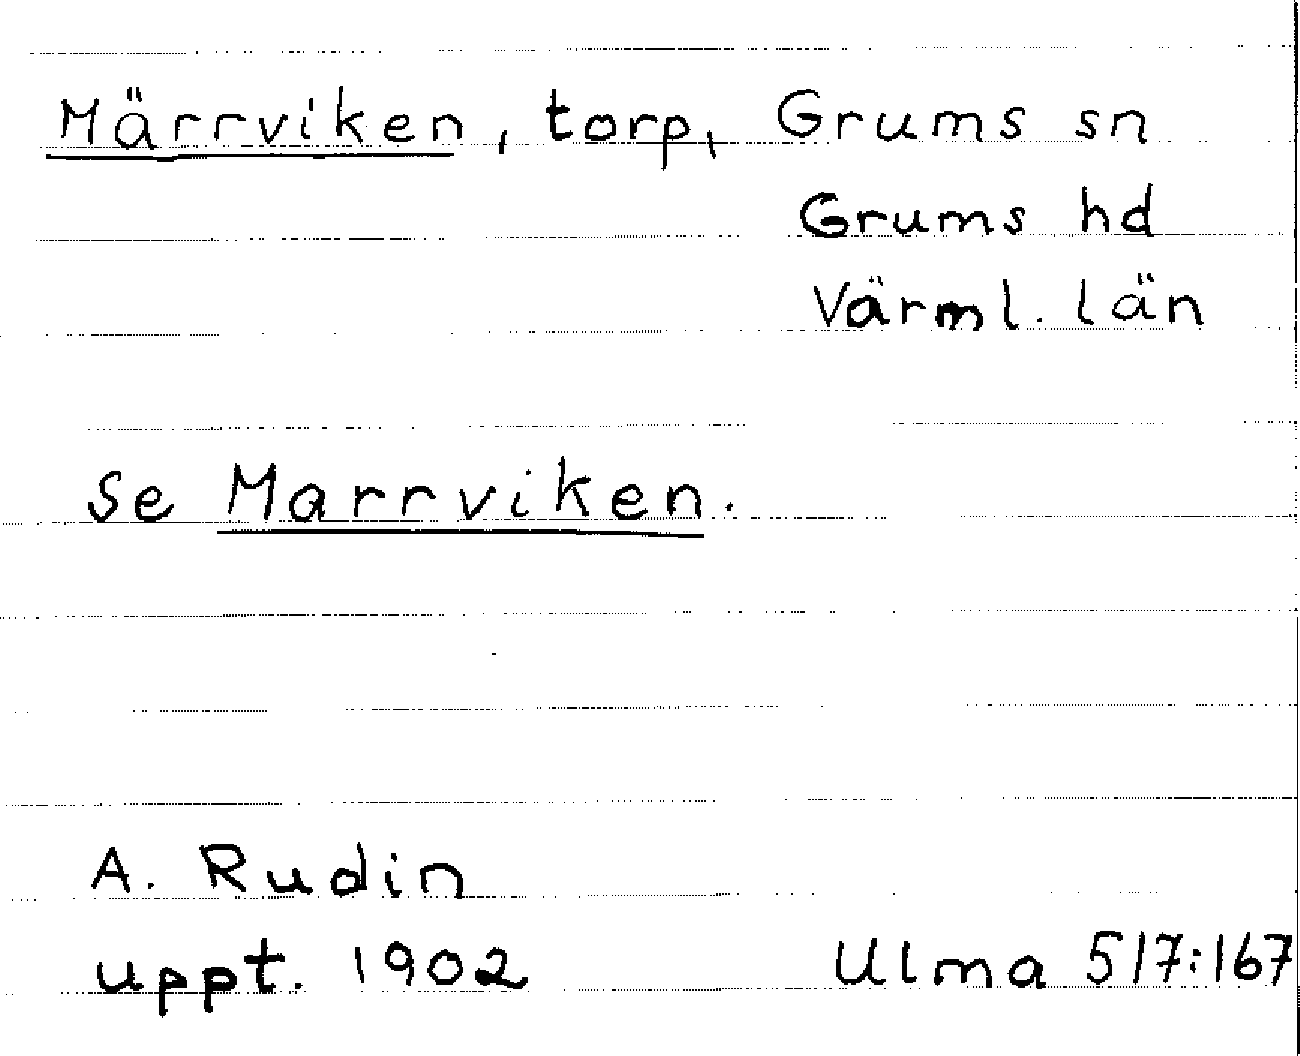 Märrviken, torp, Grums sn
Grums hd
Värml. län
Se Marrviken.
A. Rudin
uppt. 1902 Ulma 517:167